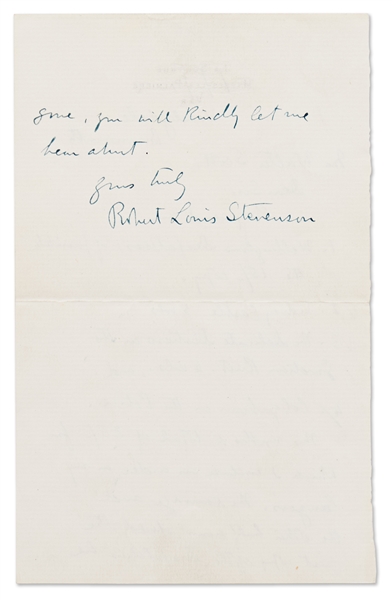 gone, you will kindly let me
hear about.
Yours truly
Robert Louis Stevenson